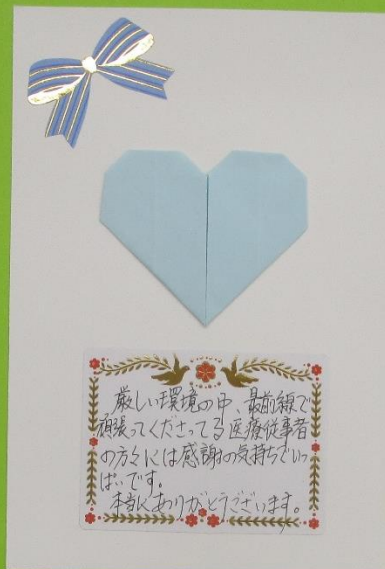 厳しい環境の中、最前線で
頑張ってくださってる医療従事者
の方々には感謝の気持ちでいっ
ぱいです。
本当にありがとうございます。